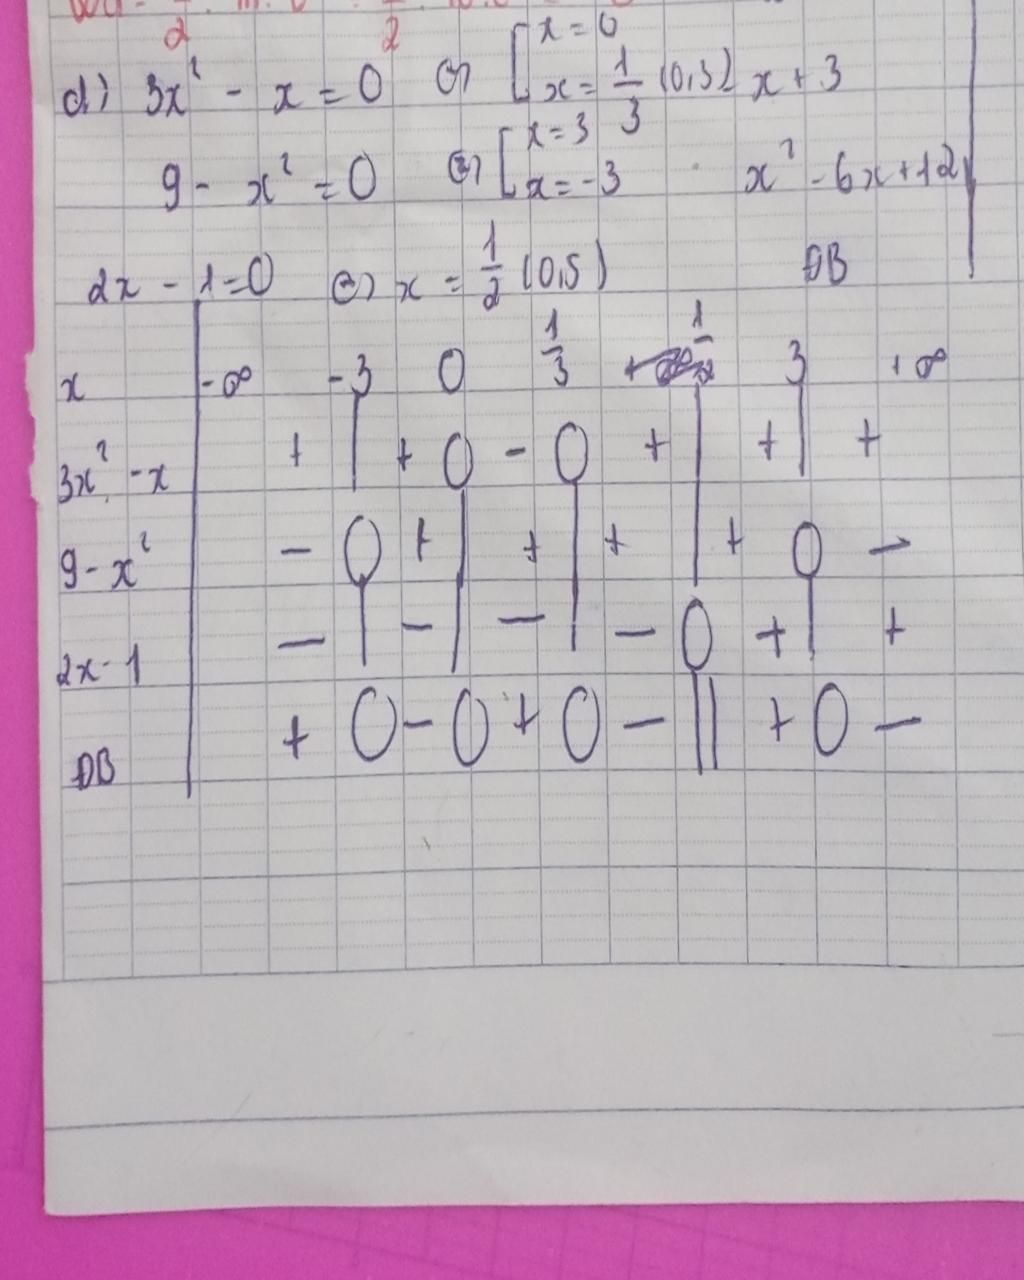 d) 3x² - x = 0 ⇔ [ x = 0
x = 1/3 (0,3) x + 3
9 - x² = 0 ⇔ [ x = 3
x = -3 x² - 6x + 12
2x - 1 = 0 ⇔ x = 1/2 (0,5) ĐB
x -∞ -3 0 1/3 1/2 3 +∞
3x² - x + | + 0 - 0 + | + | +
9 - x² - 0 + | + | + | + 0 -
2x - 1 - | - | - | - 0 + | +
ĐB + 0 - 0 + 0 - || + 0 -